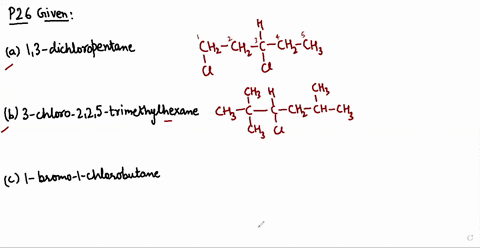 P26 Given:
(a) 1,3-dichloropentane
1 2 3 4 5
H
CH2-CH2-C-CH2-CH3
Cl Cl
(b) 3-chloro-2,2,5-trimethylhexane
CH3 H CH3
CH3-C-C-CH2-CH-CH3
CH3 Cl
(c) 1-bromo-1-chlorobutane